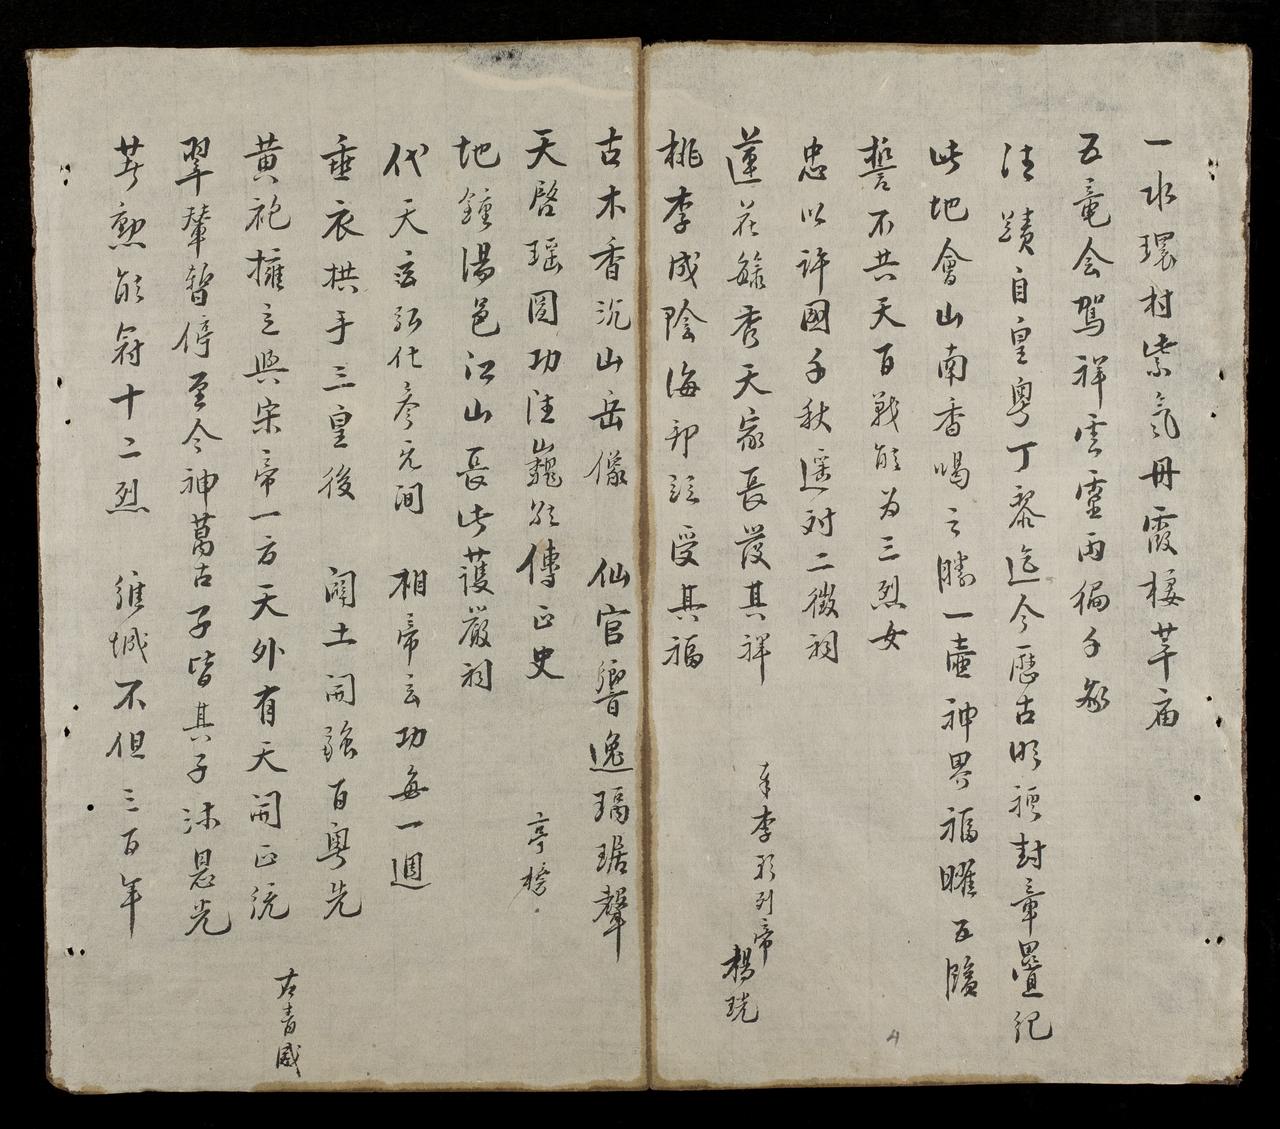 一水環村紫氣丹霞棲莘庙
五竜会駕祥雲靈雨徧千
注蹟自皇粵丁黎迄今歷古昭極封章疊記
此地會山南香喝之勝一壺神界福曜五臨
誓不共天百戦能为三烈女
忠以許國千秋遥对二徵祠
蓮花毓秀天家長發其祥
桃李成陰海邦誕受其福
奉李形列帝
楊珖
古木香沉山岳像 仙官響逸瑀琚聲
天啓瑶圖功注巍然傳正史
亭榜
地鍾湯邑江山長此護嚴祠
代天玄弘化参元间 相帝玄功每一週
垂衣拱手三皇後 闢土開疆百粵先
黄袍擁立與宋帝一方天外有天開正统
翠輦暫停至今神萬古子皆其子沐恩光
古青威
莽勲能符十二烈 維城不但三百年